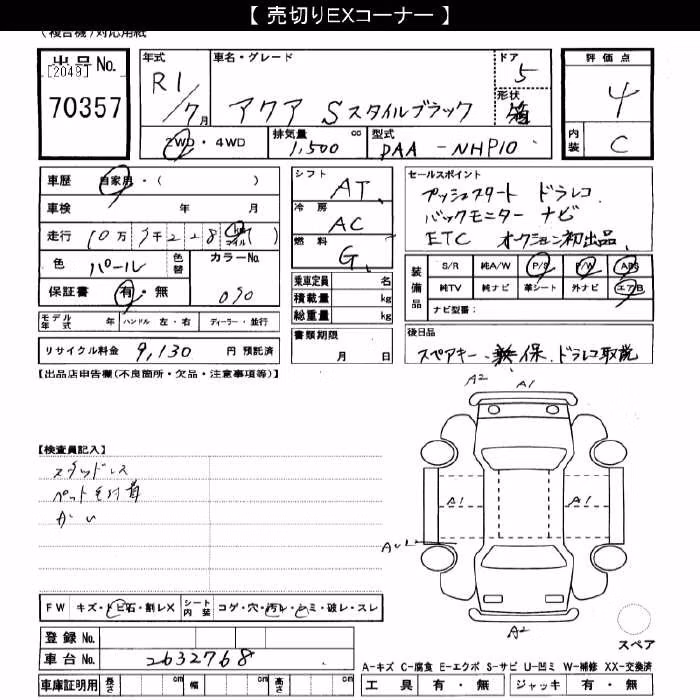 【 売切りEXコーナー 】
(複合機)対応用紙
出品No.
[2049]
70357
年式
R1/7月
車名・グレード
アクア Sスタイルブラック
ドア
5
形状
箱
評価点
4
内装
C
2WD・4WD
排気量 cc
1,500
型式
DAA-NHP10
車歴 自家用・( )
車検 年 月
走行 10万 2 2 8 km マイル ( )
色 パール
色替
カラーNo.
070
保証書 有・無
モデル年式 年 ハンドル 左・右 ディーラー・並行
リサイクル料金 9,130 円 預託済
シフト AT
冷房 AC
燃料 G
乗車定員 名
積載量 kg
総重量 kg
書類期限
月 日
セールスポイント
プッシュスタート ドラレコ
バックモニター ナビ
ETC オークション初出品
装備品
S/R 純A/W P/S P/W ABS
純TV 純ナビ 革シート 外ナビ エアB
ナビ型番:
後日品
スペアキー、取保、ドラレコ取説
【出品店申告欄(不良箇所・欠品・注意事項等)】
【検査員記入】
スタッドレス
ペット毛付着
A2 A1
A1 A1
A2
スペア
FW キズ・トビ石・割レX シート内装 コゲ・穴・汚レ・シミ・破レ・スレ
登録No.
車台No. 2632768
車庫証明用 長さ cm 幅 cm 高さ cm
A-キズ C-腐食 E-エクボ S-サビ U-凹ミ W-補修 XX-交換済
工具 有・無 ジャッキ 有・無